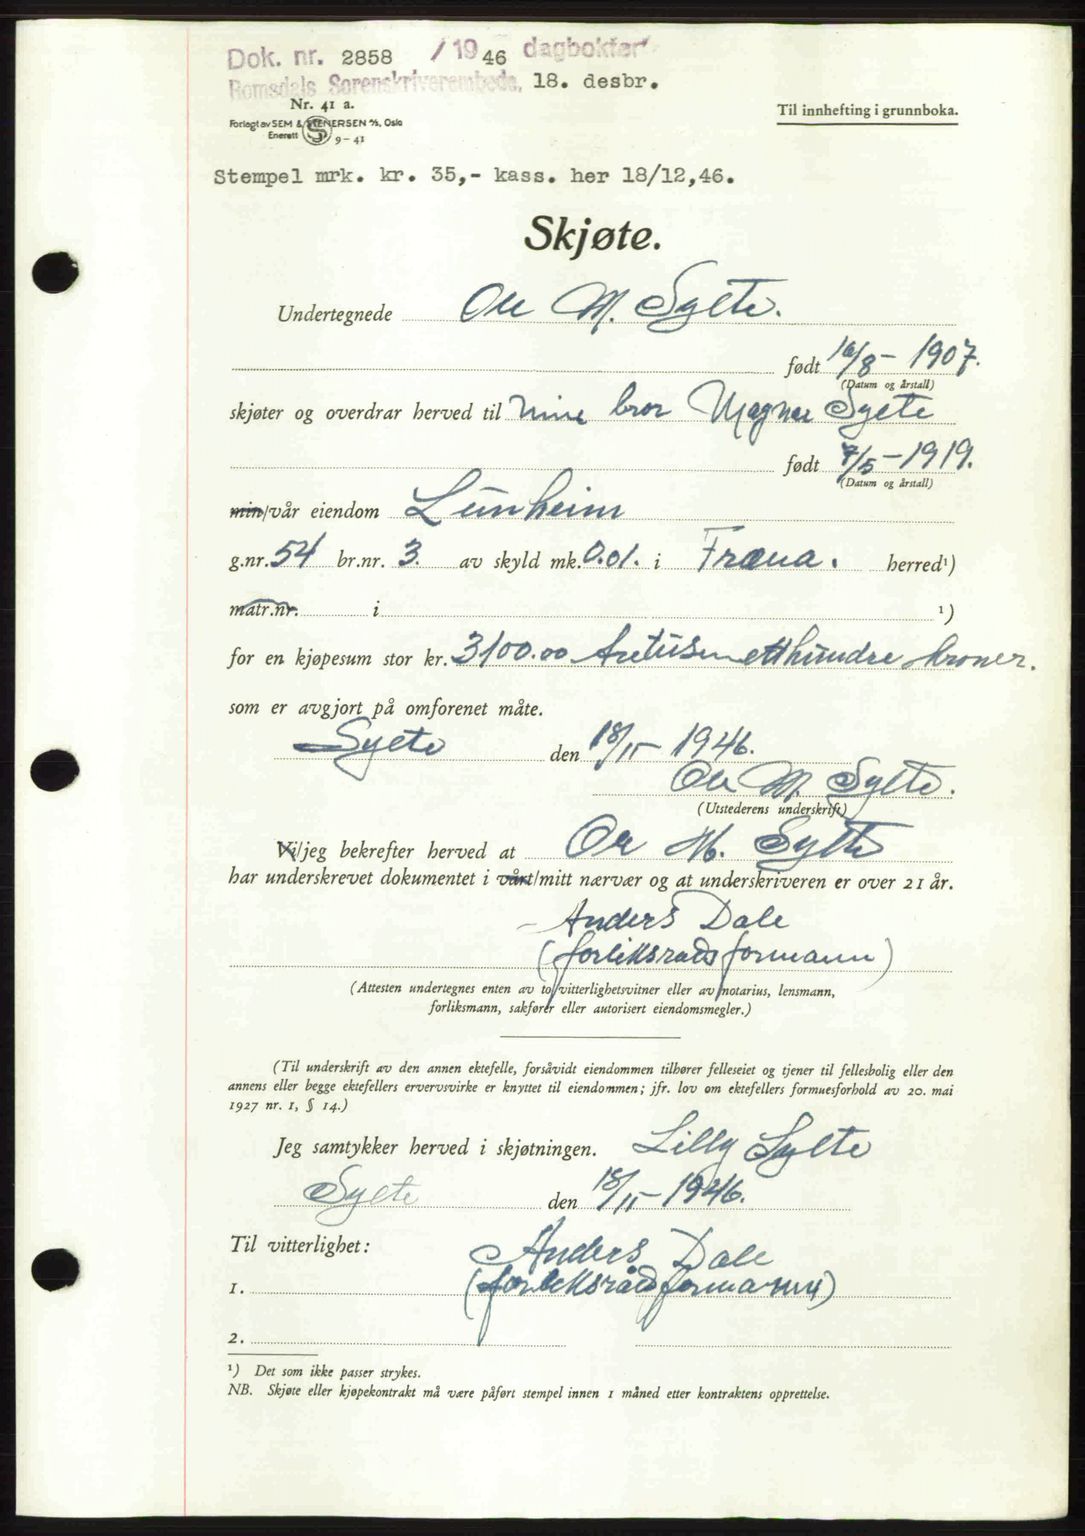 Dok. nr. 2858 / 19 46 dagbokført
Romsdals Sorenskriverembede, 18. desbr.
Nr. 41 a.
Til innhefting i grunnboka.
Forlagt av SEM & STENERSEN A/S, Oslo
Enerett S 9-41
Stempel mrk. kr. 35,- kass. her 18/12,46.
Skjøte.
Undertegnede Ole M. Sylte.
født 16/8 - 1907.
(Datum og årstall)
skjøter og overdrar herved til min bror Magnar Sylte
født 7/5 - 1919.
(Datum og årstall)
min/vår eiendom Lunheim
g.nr. 54 br.nr. 3. av skyld mk. 0.01. i Fræna. herred¹)
matr.nr. i ¹)
for en kjøpesum stor kr. 3100.00 tretusenetthundre kroner.
som er avgjort på omforenet måte.
Sylte den 18/11 - 1946.
Ole M. Sylte.
(Utstederens underskrift)
Vi/jeg bekrefter herved at Ole M. Sylte
har underskrevet dokumentet i vårt/mitt nærvær og at underskriveren er over 21 år.
Anders Dale
(forliksrådsformann)
(Attesten undertegnes enten av to vitterlighetsvitner eller av notarius, lensmann,
forliksmann, sakfører eller autorisert eiendomsmegler.)
(Til underskrift av den annen ektefelle, forsåvidt eiendommen tilhører felleseiet og tjener til fellesbolig eller den
annens eller begge ektefellers ervervsvirke er knyttet til eiendommen; jfr. lov om ektefellers formuesforhold av 20. mai
1927 nr. 1, § 14.)
Jeg samtykker herved i skjøtningen. Lilly Sylte
Sylte den 18/11 - 1946.
Til vitterlighet:
Anders Dale
1. (forliksrådsformann)
2.
¹) Det som ikke passer strykes.
NB. Skjøte eller kjøpekontrakt må være påført stempel innen 1 måned etter kontraktens opprettelse.